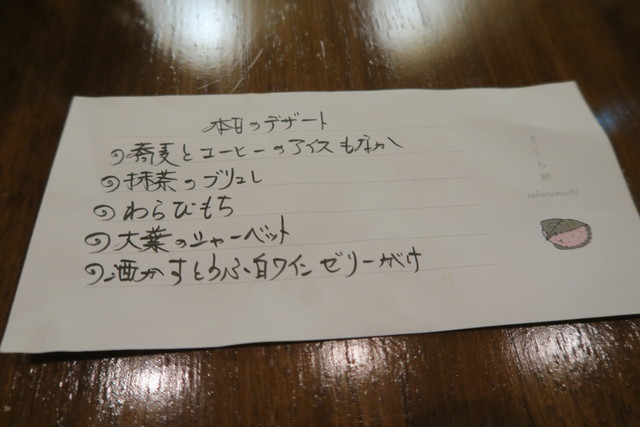 本日のデザート
の蕎麦とコーヒーのアイスもなか
の抹茶のブリュレ
のわらびもち
の大葉のシャーベット
の酒かすとうふ白ワインゼリーがけ
さくら餅
sakuramochi